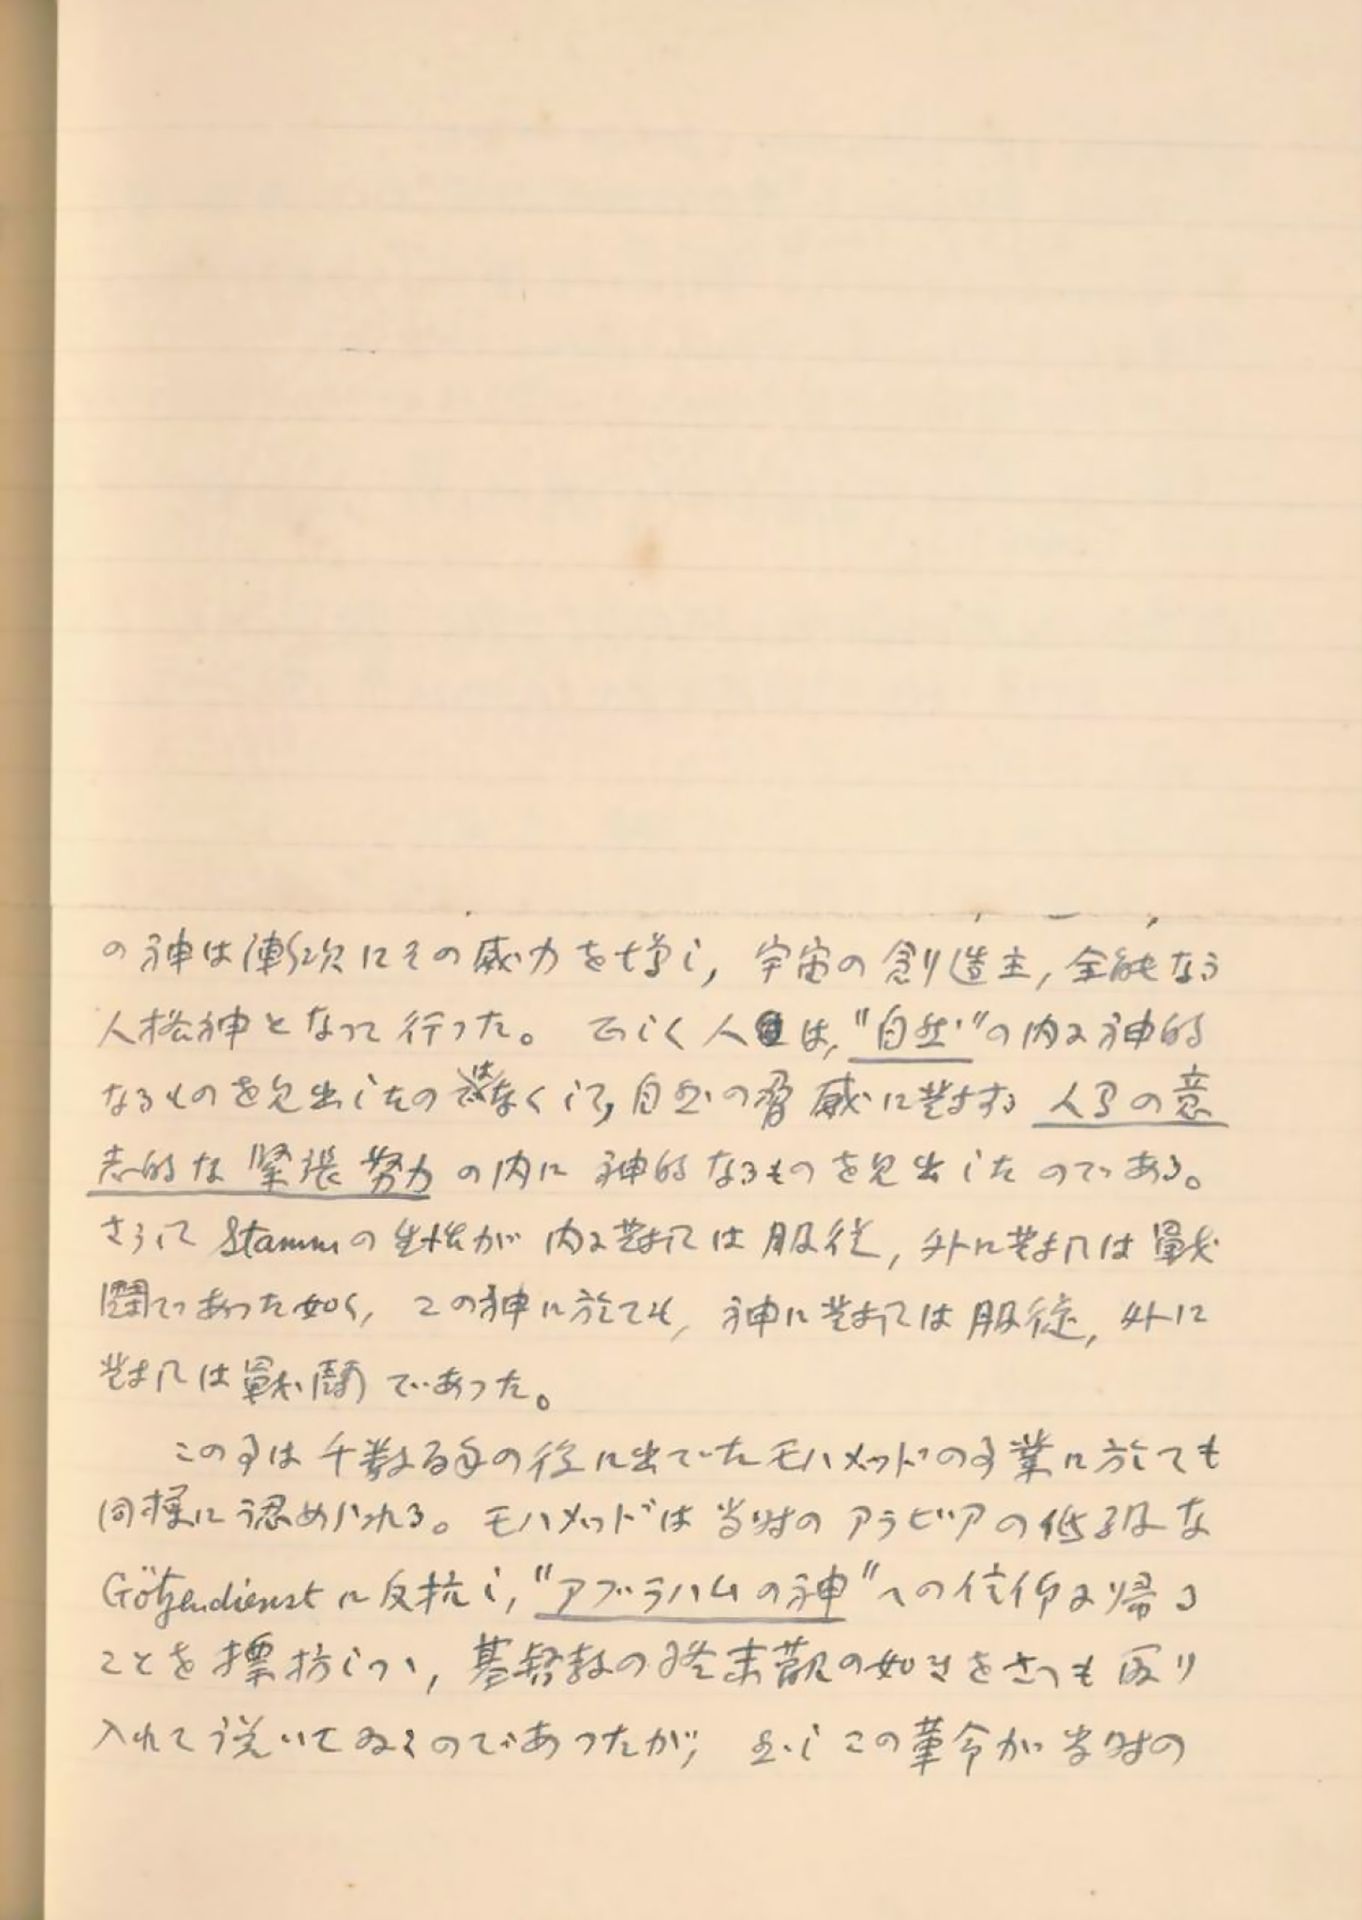 の神は漸次にその威力を増し，宇宙の創造主，全能なる
人格神となって行った。正しく人は，"自然"の内に神的
なるものを見出したのはなくして，自然の脅威に対する人間の意
志的な緊張努力の内に神的なるものを見出したのである。
そうして Stammの生格が内に対しては服従，外に対しては戰
鬪であった如く，この神に於ても，神に対しては服従，外に
対しては戰鬪であった。
この事は千数百年の後に出でたモハメッドの事業に於ても
同様に認められる。モハメッドは当時のアラビアの低級な
Götzendienst に反抗し，"アブラハムの神"への信仰に帰る
ことを標榜しつゝ，基督教の終末観の如きをさへも取り
入れて説いてゐるのであったが，然しこの革命が当時の